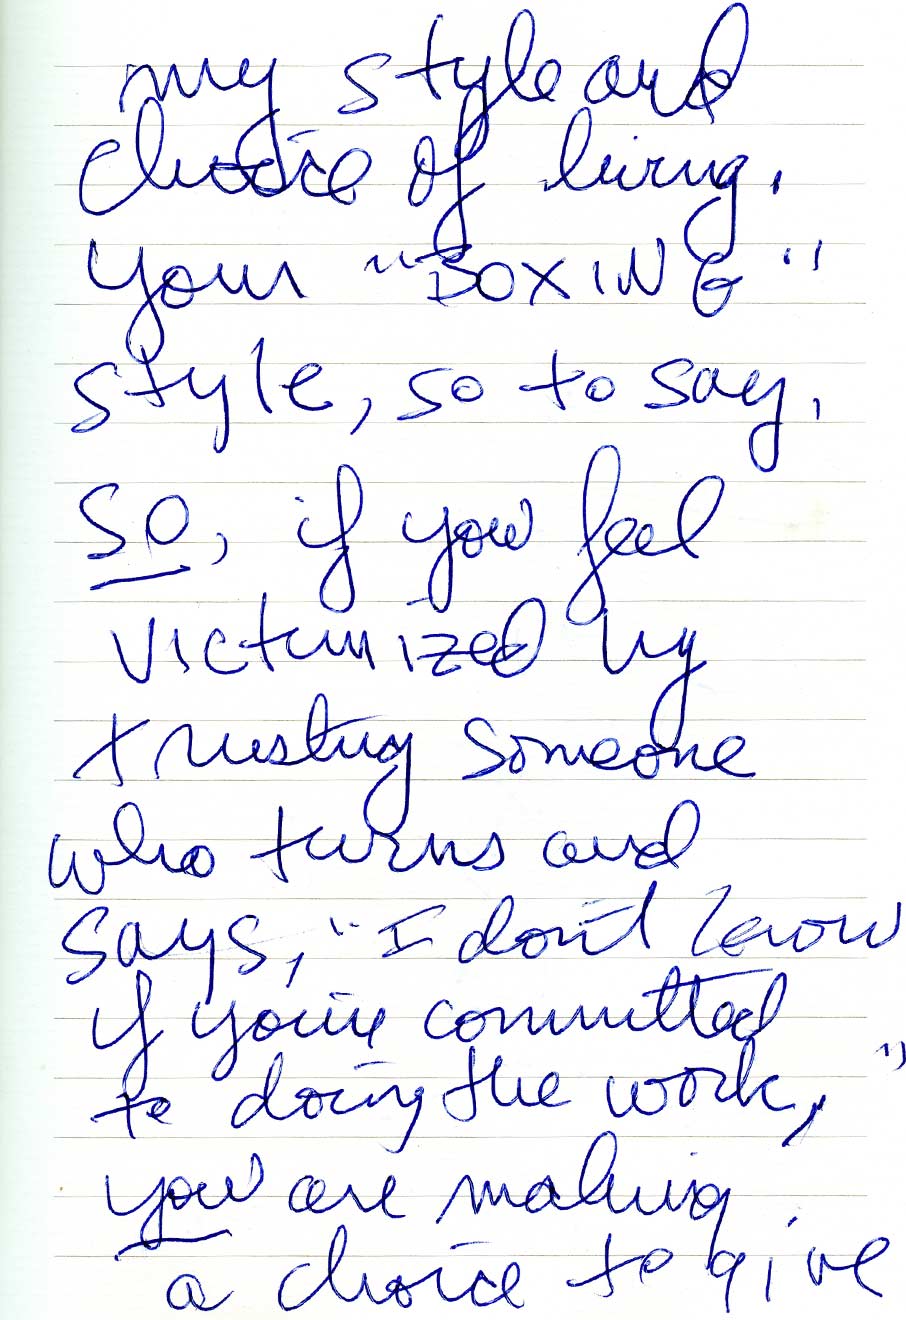 my style and
choice of living.
Your "BOXING"
style, so to say.
So, if you feel
victimized by
trusting someone
who turns and
says, "I don't know
if you're committed
to doing the work,"
you are making
a choice to give